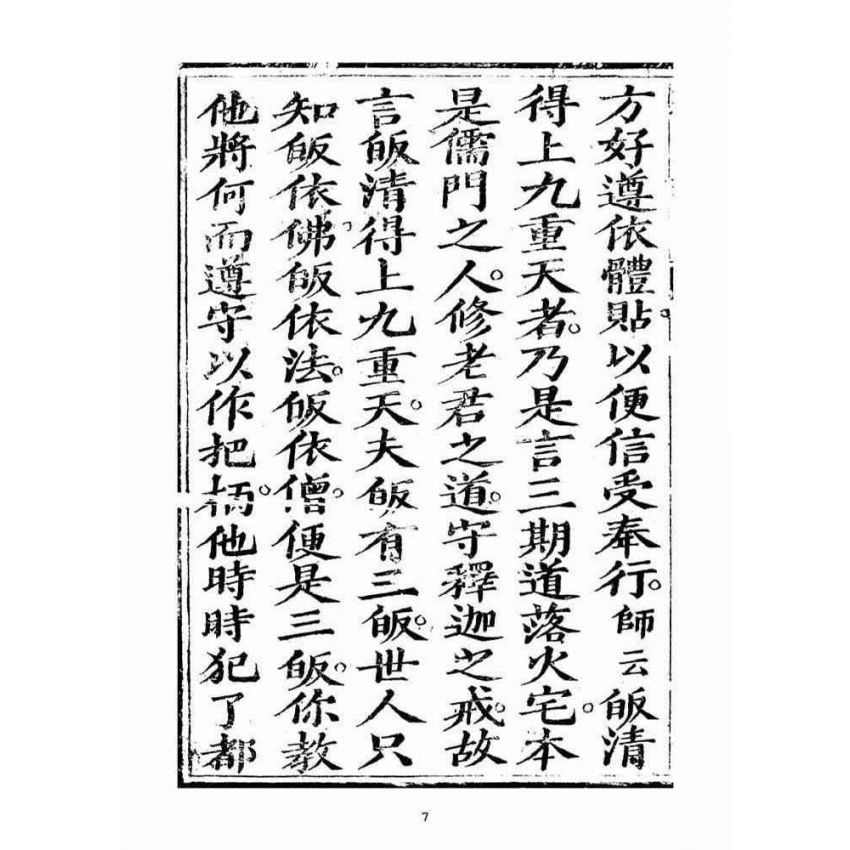 方好遵依體貼。以便信受奉行。師云皈清
得上九重天者。乃是言三期道落火宅。本
是儒門之人。修老君之道。守釋迦之戒。故
言皈清得上九重天。夫皈有三皈。世人只
知皈依佛。皈依法。皈依僧。便是三皈。你教
他將何而遵守以作把柄。他時時犯了都
7